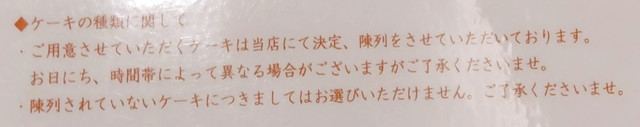 ◆ケーキの種類に関して
・ご用意させていただくケーキは当店にて決定、陳列をさせていただいております。
お日にち、時間帯によって異なる場合がございますがご了承くださいませ。
・陳列されていないケーキにつきましてはお選びいただけません。ご了承くださいませ。